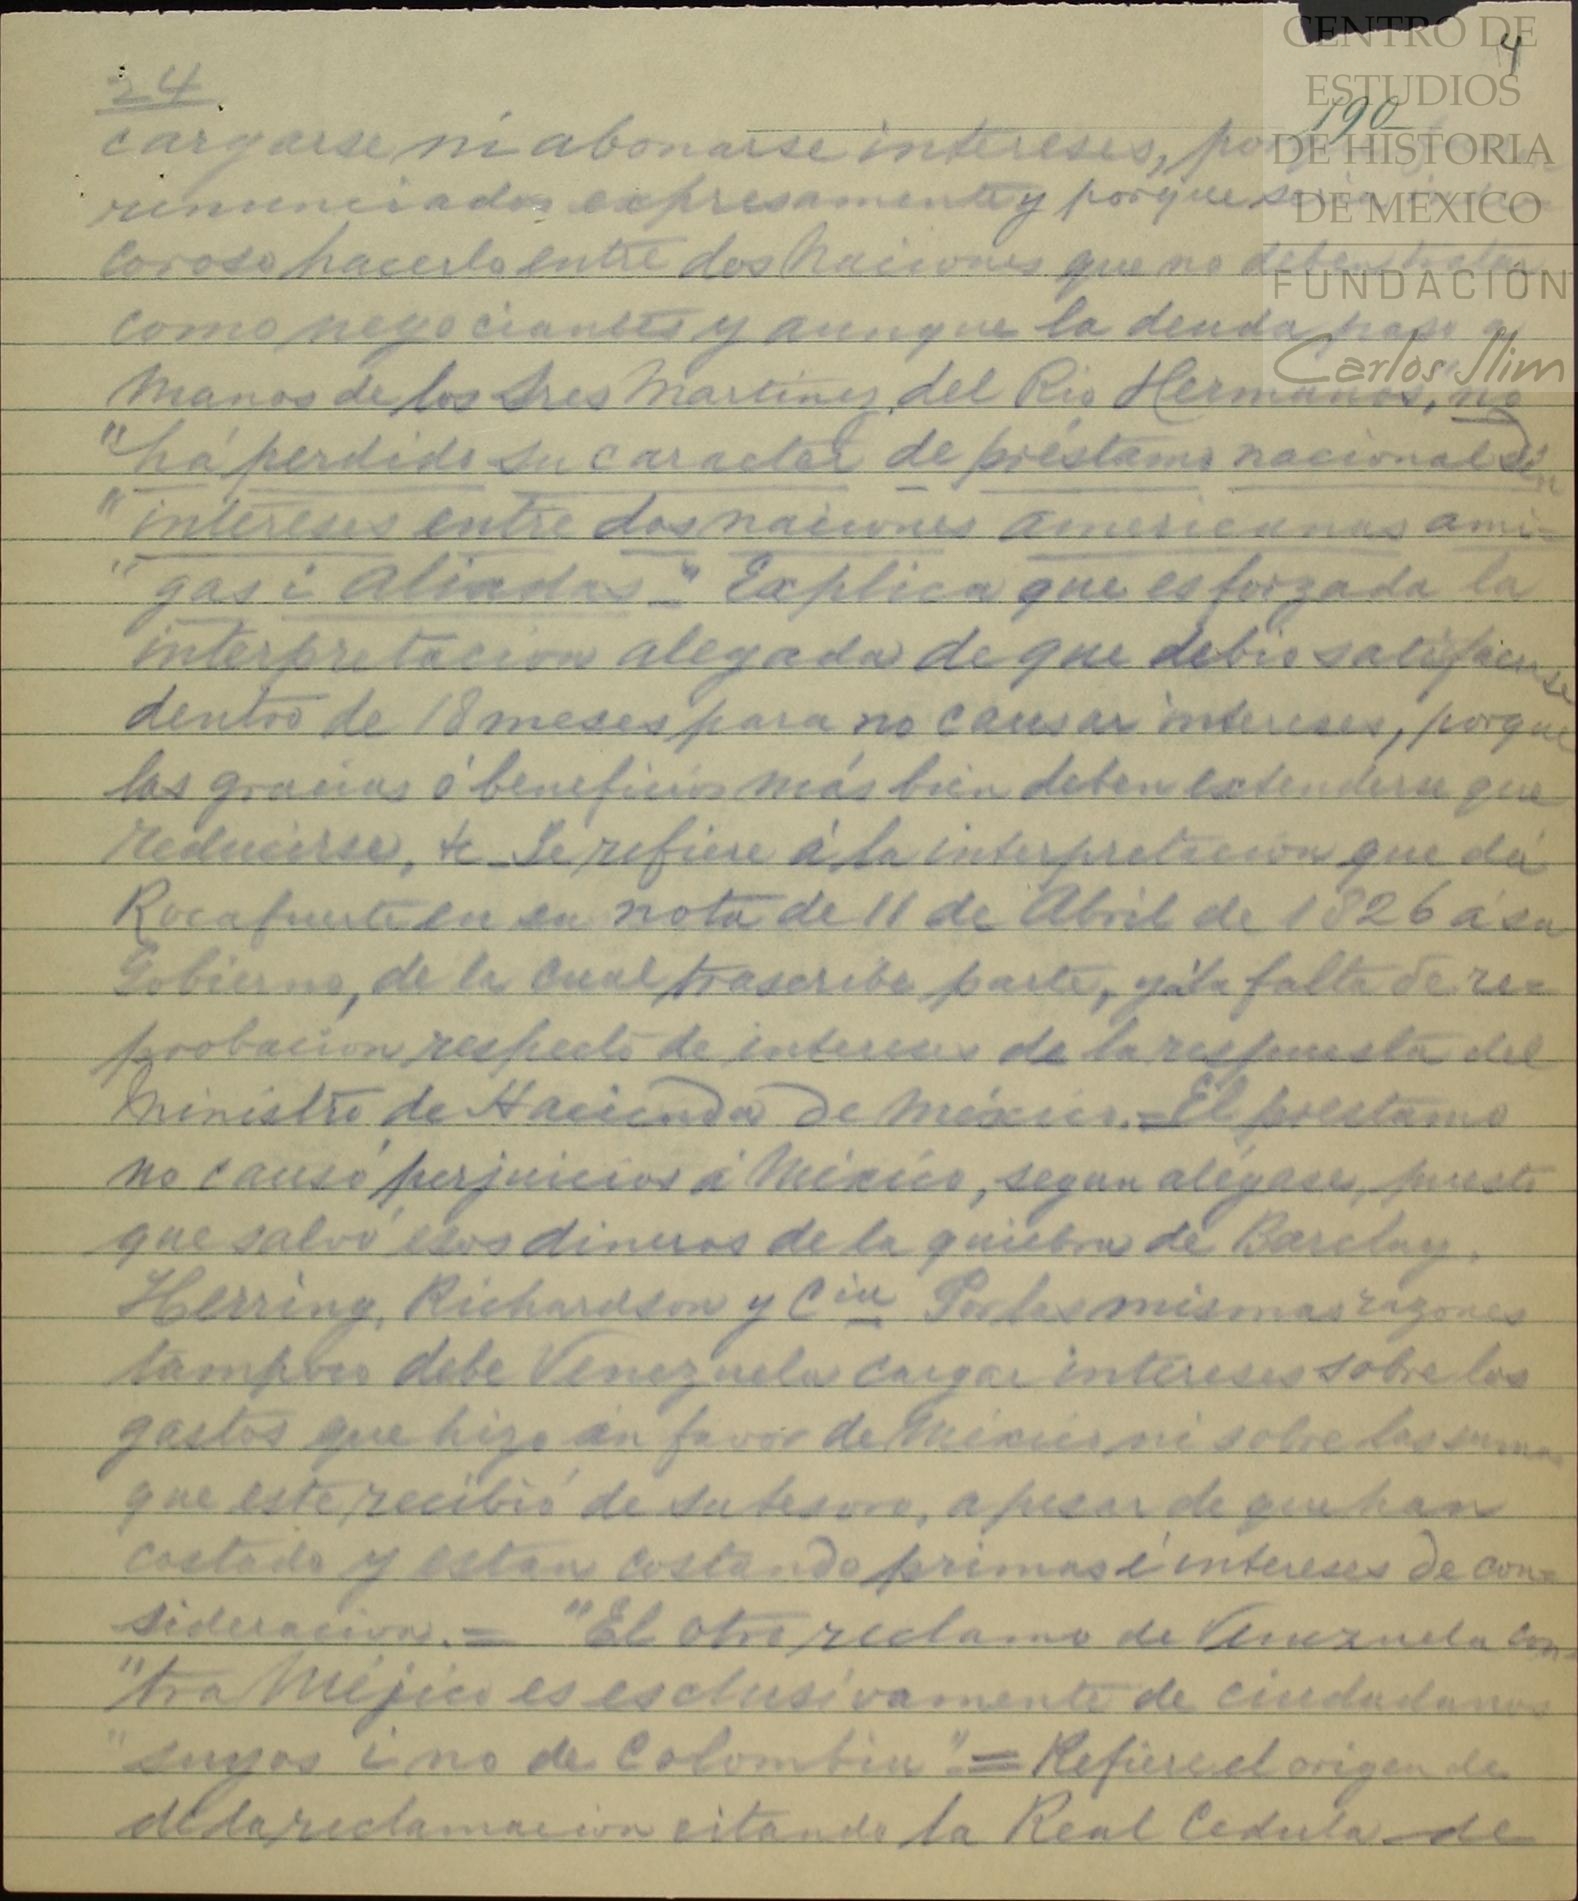 24
4
190
CENTRO DE
ESTUDIOS
DE HISTORIA
DE MEXICO
FUNDACIÓN
Carlos Slim
cargarse ni abonarse intereses,
renunciados expresamente y porque seria
coroso hacerlo entre dos Naciones que no deben tratar
como negociantes y aunque la deuda paso a
manos de los Sres Martinez del Rio Hermanos, no
"há perdido su caracter de préstamo nacional sin
"intereses entre dos naciones americanas ami-
"gas i aliadas_" Explica que es forzada la
interpretacion alegada de que debio satisfacerse
dentro de 18 meses para no causar intereses, porque
las gracias ó beneficios más bien deben extenderse que
reducirse, &c_ Se refiere á la interpretacion que dá
Rocafuerte en su nota de 11 de Abril de 1826 á su
Gobierno, de la cual trascribe parte, y á la falta de re=
probacion respecto de intereses de la respuesta del
Ministro de Hacienda de México.= El prestamo
no causó perjuicios á México, segun alégase, puesto
que salvó esos dineros de la quiebra de Barclay,
Herring, Richardson y Cia Por las mismas razones
tampoco debe Venezuela cargar intereses sobre los
gastos que hizo en favor de México ni sobre las sumas
que este recibió de su tesoro, a pesar de que han
costado y estan costando primas é intereses de con=
sideracion.= "El otro reclamo de Venezuela con-
"tra Méjico es esclusivamente de ciudadanos
"suyos i no de Colombia".= Refiere el origen de
de la reclamacion citando la Real Cedula de